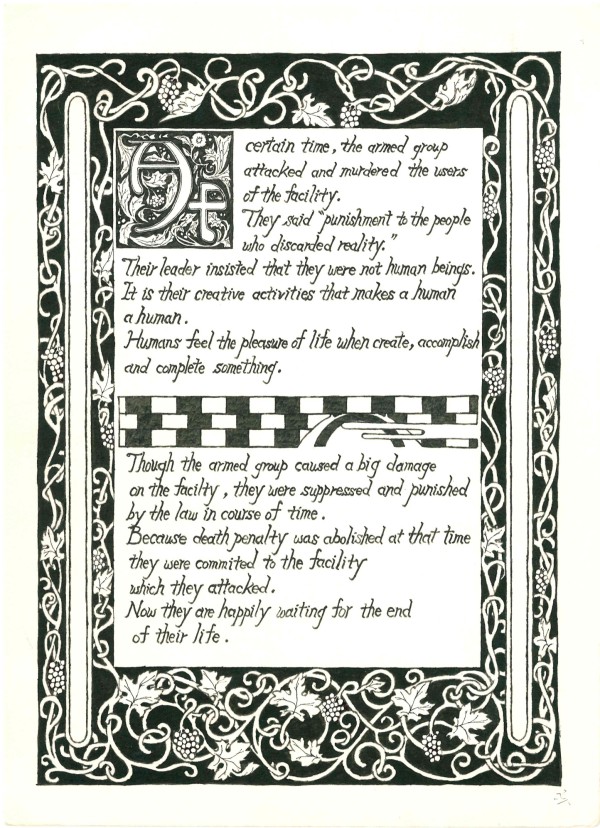 At certain time, the armed group
attacked and murdered the users
of the facility.
They said "punishment to the people
who discarded reality."
Their leader insisted that they were not human beings.
It is their creative activities that makes a human
a human.
Humans feel the pleasure of life when create, accomplish
and complete something.
Though the armed group caused a big damage
on the facilty, they were suppressed and punished
by the law in course of time.
Because death penalty was abolished at that time
they were commited to the facility
which they attacked.
Now they are happily waiting for the end
of their life.